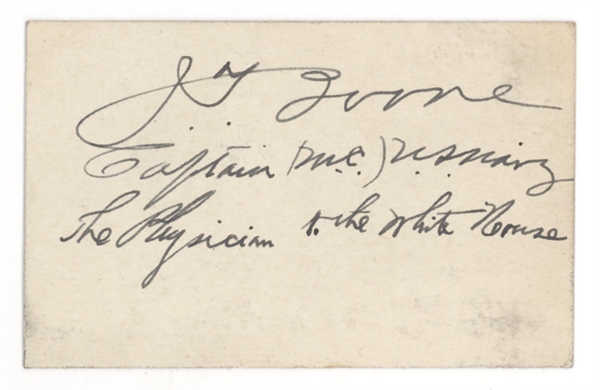 J T Boone
Captain (M.C.) U.S. Navy
The Physician to the White House